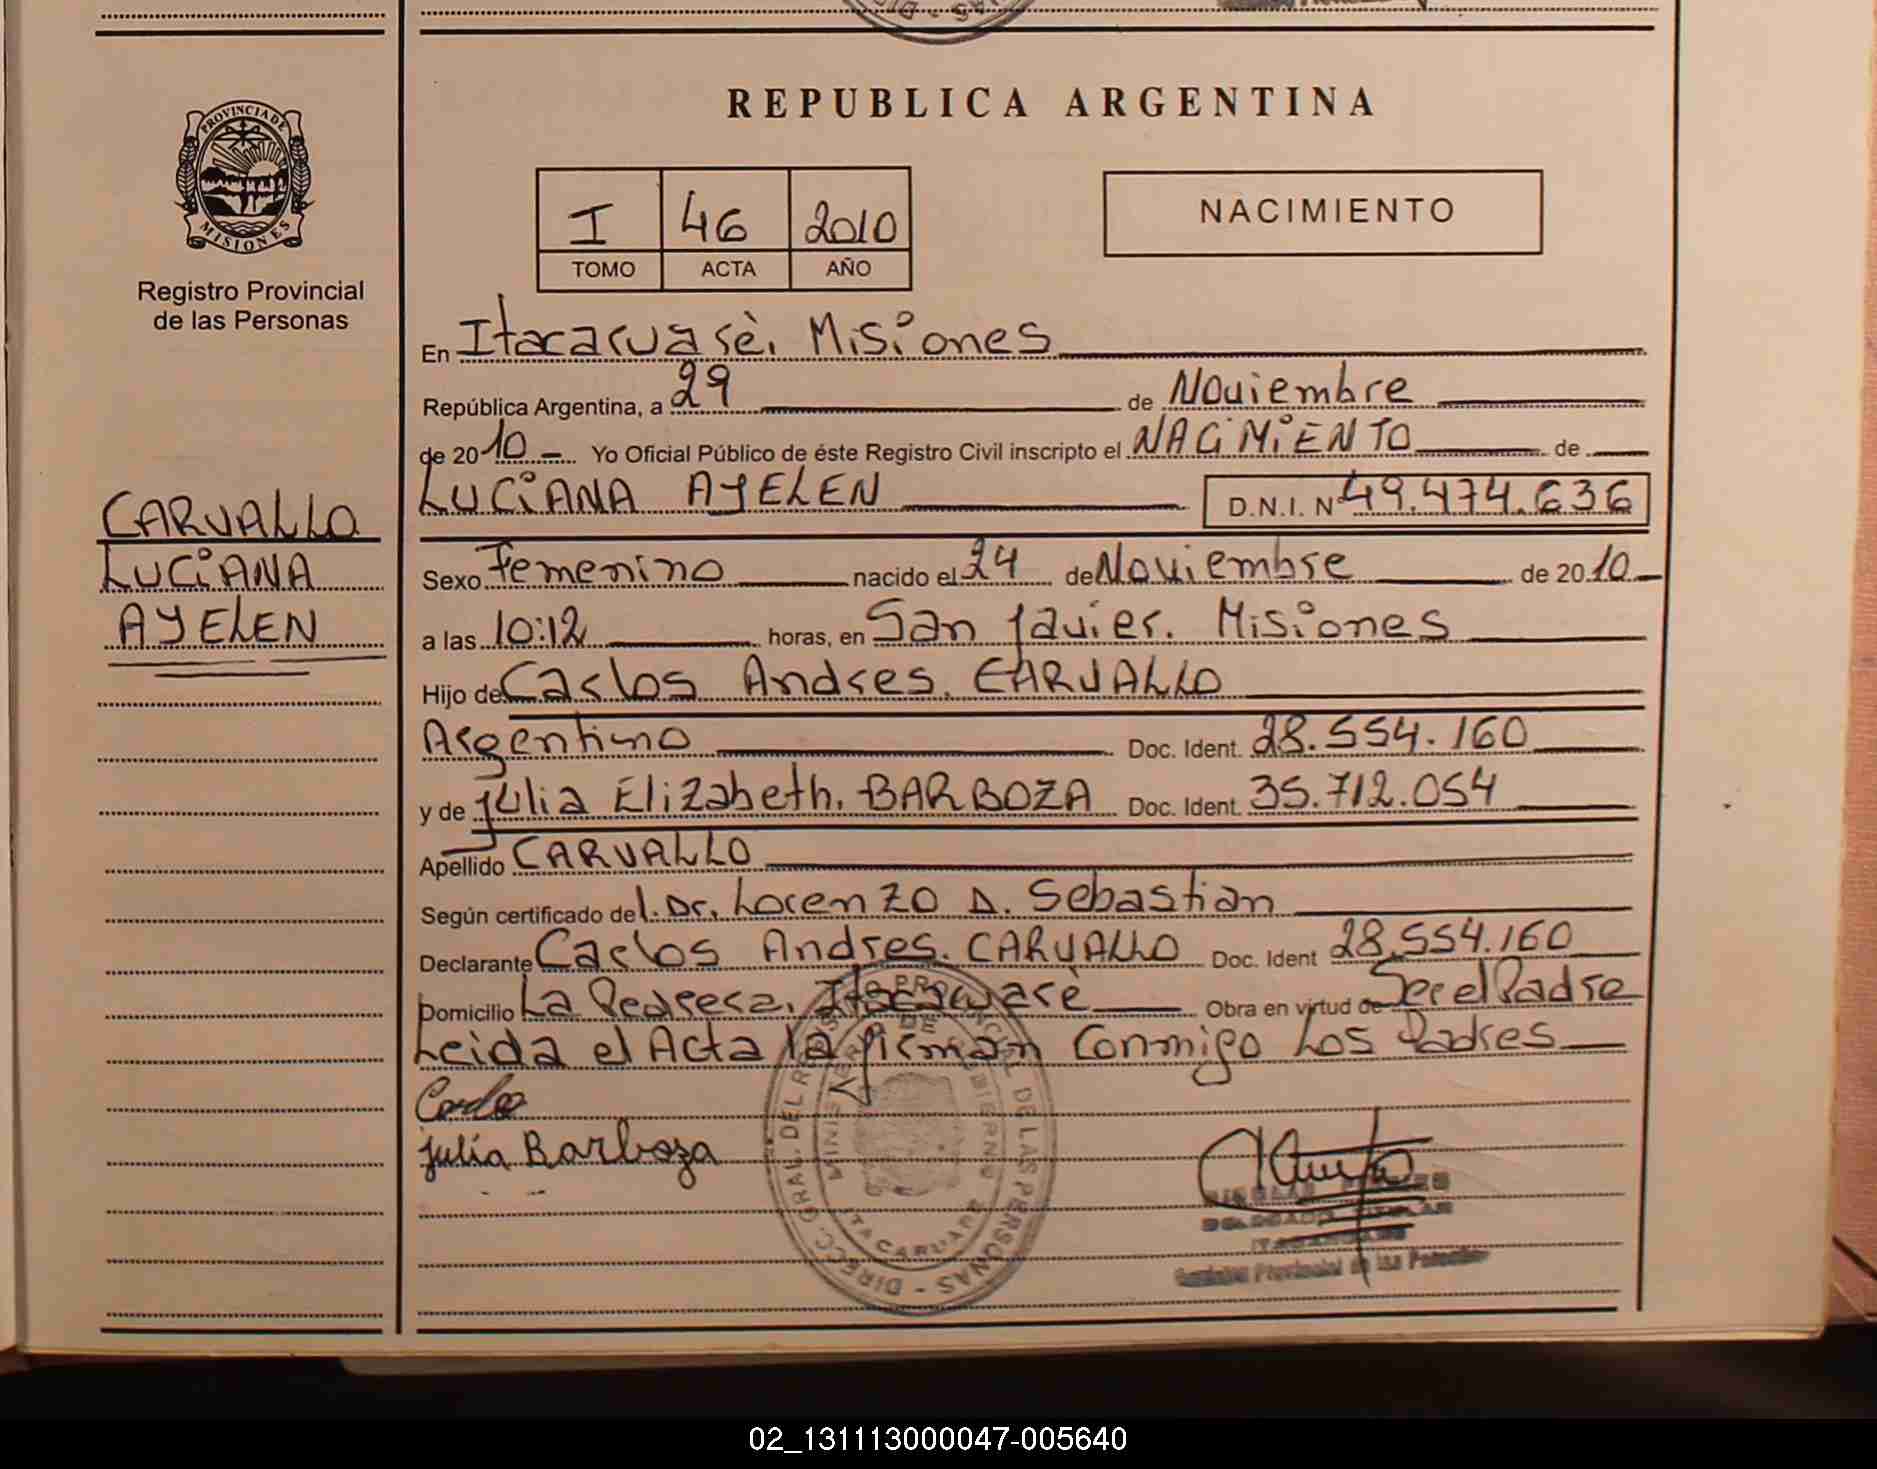 REPUBLICA ARGENTINA
PROVINCIA DE
MISIONES
Registro Provincial
de las Personas
I 46 2010
TOMO ACTA AÑO
NACIMIENTO
CARVALLO
LUCIANA
AYELEN
En Itacaruarè, Misiones
República Argentina, a 29 de Noviembre
de 2010 Yo Oficial Público de éste Registro Civil inscripto el NACIMIENTO de
LUCIANA AYELEN D.N.I. Nº 49.474.636
Sexo Femenino nacido el 24 de Noviembre de 2010
a las 10:12 horas, en San Javier. Misiones
Hijo de Carlos Andres. CARVALLO
Argentino Doc. Ident. 28.554.160
y de Julia Elizabeth. BARBOZA Doc. Ident. 35.712.054
Apellido CARVALLO
Según certificado del. Dr. Lorenzo D. Sebastian
Declarante Carlos Andres. CARVALLO Doc. Ident 28.554.160
Domicilio La Pedrera, Itacaruarè Obra en virtud de Ser el Padre
Leida el Acta la firman Conmigo Los Padres
Julia Barboza
DIRECC. GRAL. DEL REGISTRO PROVINCIAL DE LAS PERSONAS
MINISTERIO DE GOBIERNO
ITACARUARE
DELEGADO TITULAR
ITACARUARE
Registro Provincial de las Personas
02_131113000047-005640